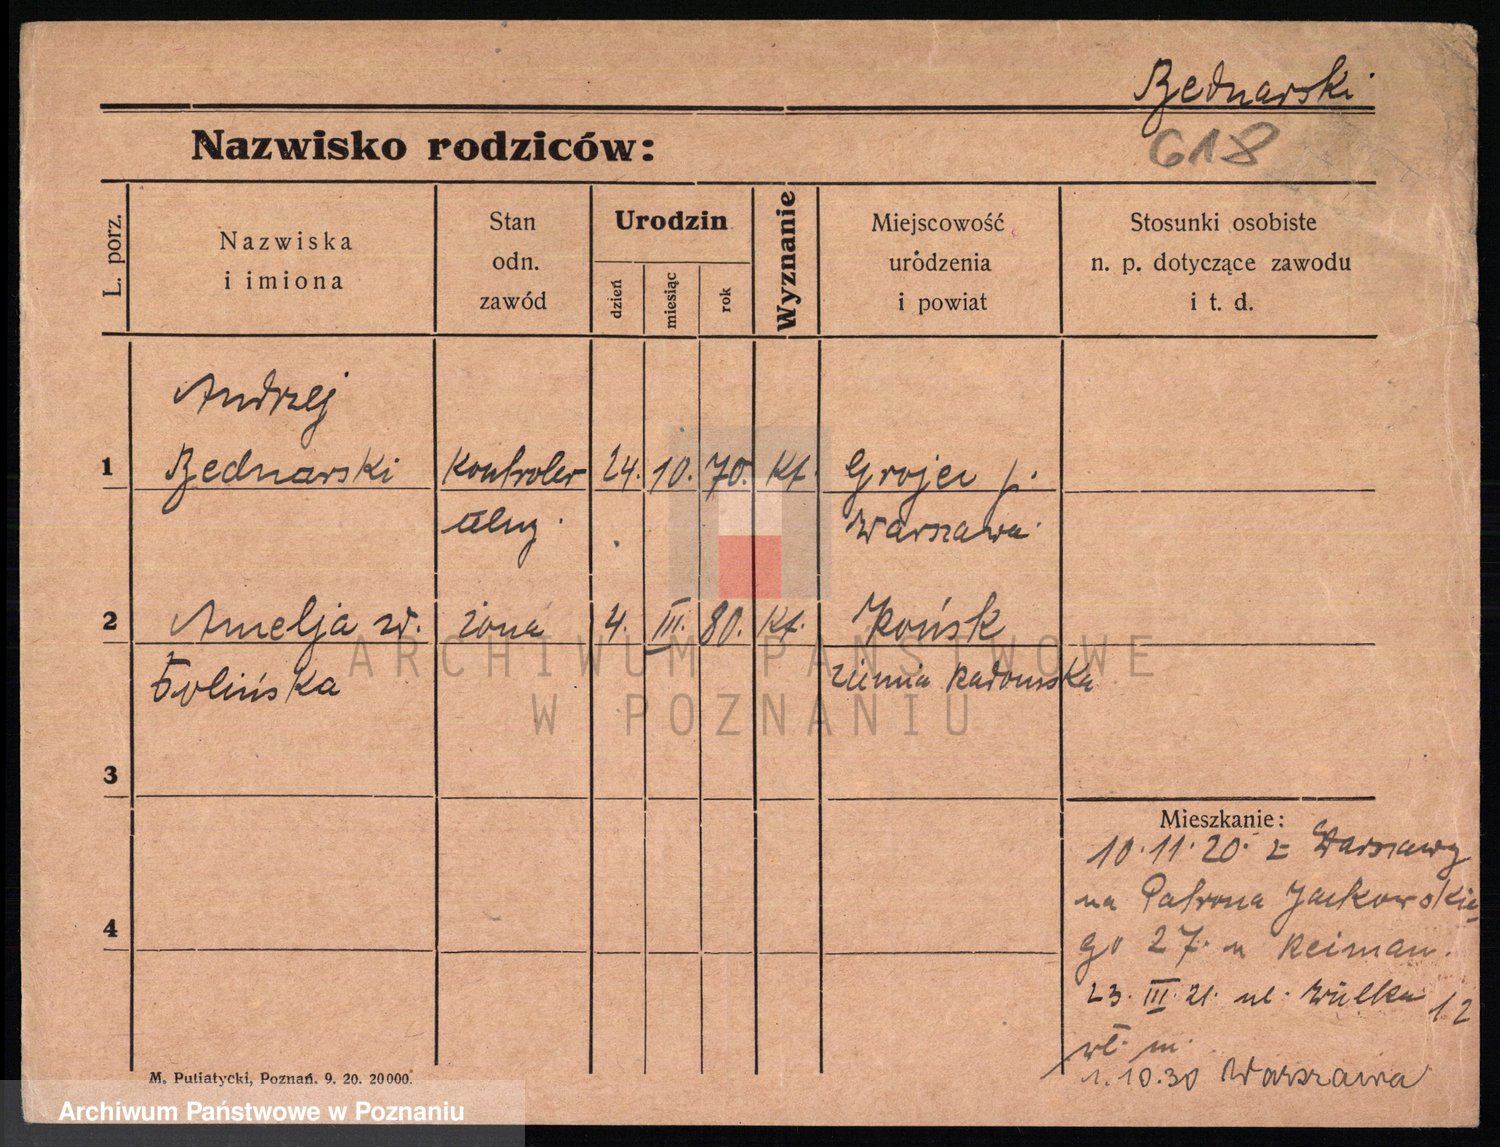 Bednarski
Nazwisko rodziców:
618
L. porz.
Nazwiska
i imiona
Stan
odn.
zawód
Urodzin
dzień
miesiąc
rok
Wyznanie
Miejscowość
urodzenia
i powiat
Stosunki osobiste
n. p. dotyczące zawodu
i t. d.
Andrzej
1 Bednarski Kontroler 24. 10. 70. Kt. Grojec p.
Warszawa
2 Amelja zd. żona 4. III. 80. Kt. Końsk
Folińska ziemia Radomska
ARCHIWUM PAŃSTWOWE
W POZNANIU
3
4
Mieszkanie:
10.11.20. z Warszawy
na Patrona Jackowskie
go 27. u Reiman.
23. III. 21. ul. Wielka 12
wł. m.
1.10.30 Warszawa
M. Putiatycki, Poznań. 9. 20. 20000.
Archiwum Państwowe w Poznaniu